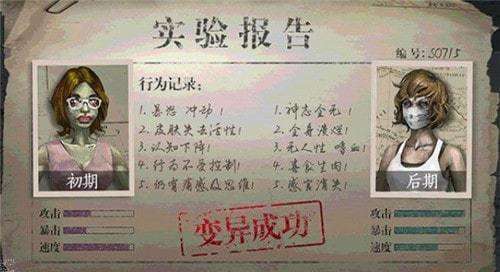 实验报告
编号:50715
行为记录:
1.易怒 冲动!
2.皮肤失去活性!
3.认知下降!
4.行为不受控制!
5.仍有痛感及思维!
1.神志全无!
2.全身溃烂!
3.无人性 嗜血!
4.喜食生肉!
5.感官消失!
初期
攻击
暴击
速度
后期
攻击
暴击
速度
变异成功